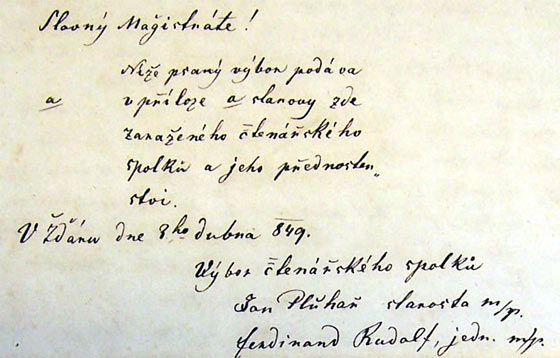 Slavný Mažistráte!
Níže psaný výbor podáva
a v příloze a stanovy zde
zaraženého čtenářského
spolků a jeho přednosten„
ství.
V Žďáru dne 8ho dubna 849.
Výbor čtenářského spolků
Jan Pluhař starosta m/p.
Ferdinand Rudolf, jedn. m/p.